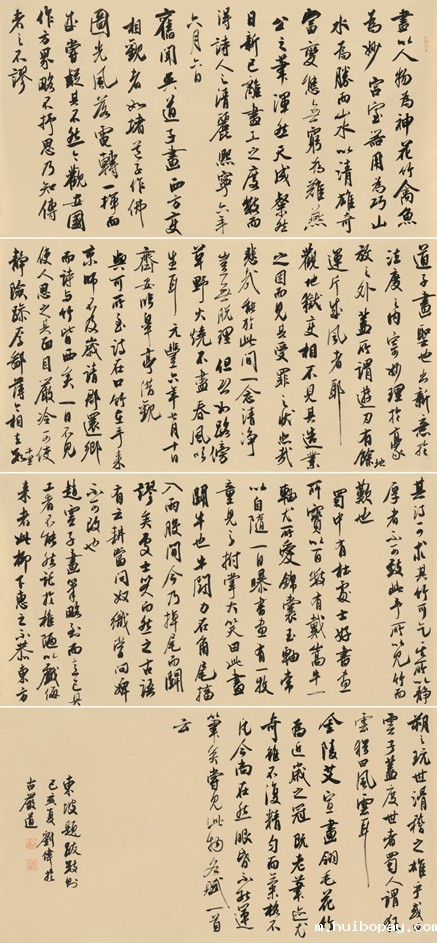 畫以人物為神花竹禽魚
為妙宮室器用為巧山
水為勝而山水以清雄奇
富變態無窮為難燕
公之筆渾然天成粲然
日新已離畫工之度數而
得詩人之清麗熙寧六年
六月六日
舊聞吳道子畫西方變
相觀者如堵道子作佛
圓光風落電轉一揮而
成嘗疑其不然今觀安國
作方界略不抒思乃知傳
者之不謬
道子畫聖也出新意於
法度之內寄妙理於豪
放之外蓋所謂遊刃有餘地
運斤成風者耶
觀地獄變相不見其造業
之因而見其受罪之狀悲哉
悲哉能於此間一念清淨
豈無脫理但恐如路傍
草野火燒不盡春風吹
生耳元豐六年七月十日
齋安臨皋亭借觀
與可所至詩在口竹在手來
京師不及歲請郡還鄉
而詩與竹皆西矣一日不見
使人思之其面目嚴冷可使
靜險躁厚鄙薄今相去數千里
其詩可求其竹可乞其所以靜
厚者不可致此予所以見竹而
歎也
蜀中有杜處士好書畫
所寶以百數有戴嵩牛一
軸尤所愛錦囊玉軸常
以自隨一日曝書畫有一牧
童見之拊掌大笑曰此畫
鬪牛也牛鬪力在角尾搐
入兩股間今乃掉尾而鬪
謬矣處士笑而然之古語
有云耕當問奴織當問婢
不可改也
趙雲子畫筆略到而意已具
工者不能然託於椎陋以戲侮
來者此柳下惠之不恭東方
朔之玩世滑稽之雄乎或曰
雲子蓋度世者蜀人謂狂
雲猶曰風雲耳
金陵艾宣畫翎毛花竹
為近歲之冠既老筆跡尤
奇雖不復精勻而氣格不
凡今尚在然眼昏不能運
筆矣嘗見此物各賦一首
云
東坡題跋數則
己亥夏劉偉於
古嚴道
m.huibopay.com